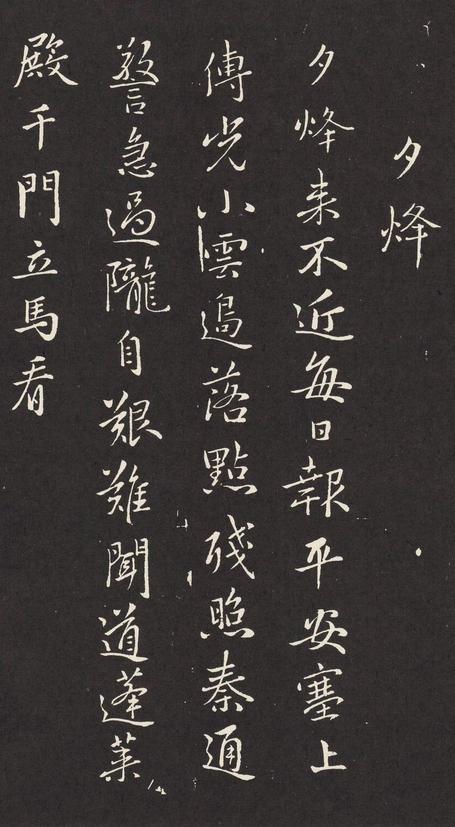 夕烽
夕烽来不近每日報平安塞上
傳光小雲邊落點殘照秦通
警急過隴自艱難聞道蓬萊
殿千門立馬看